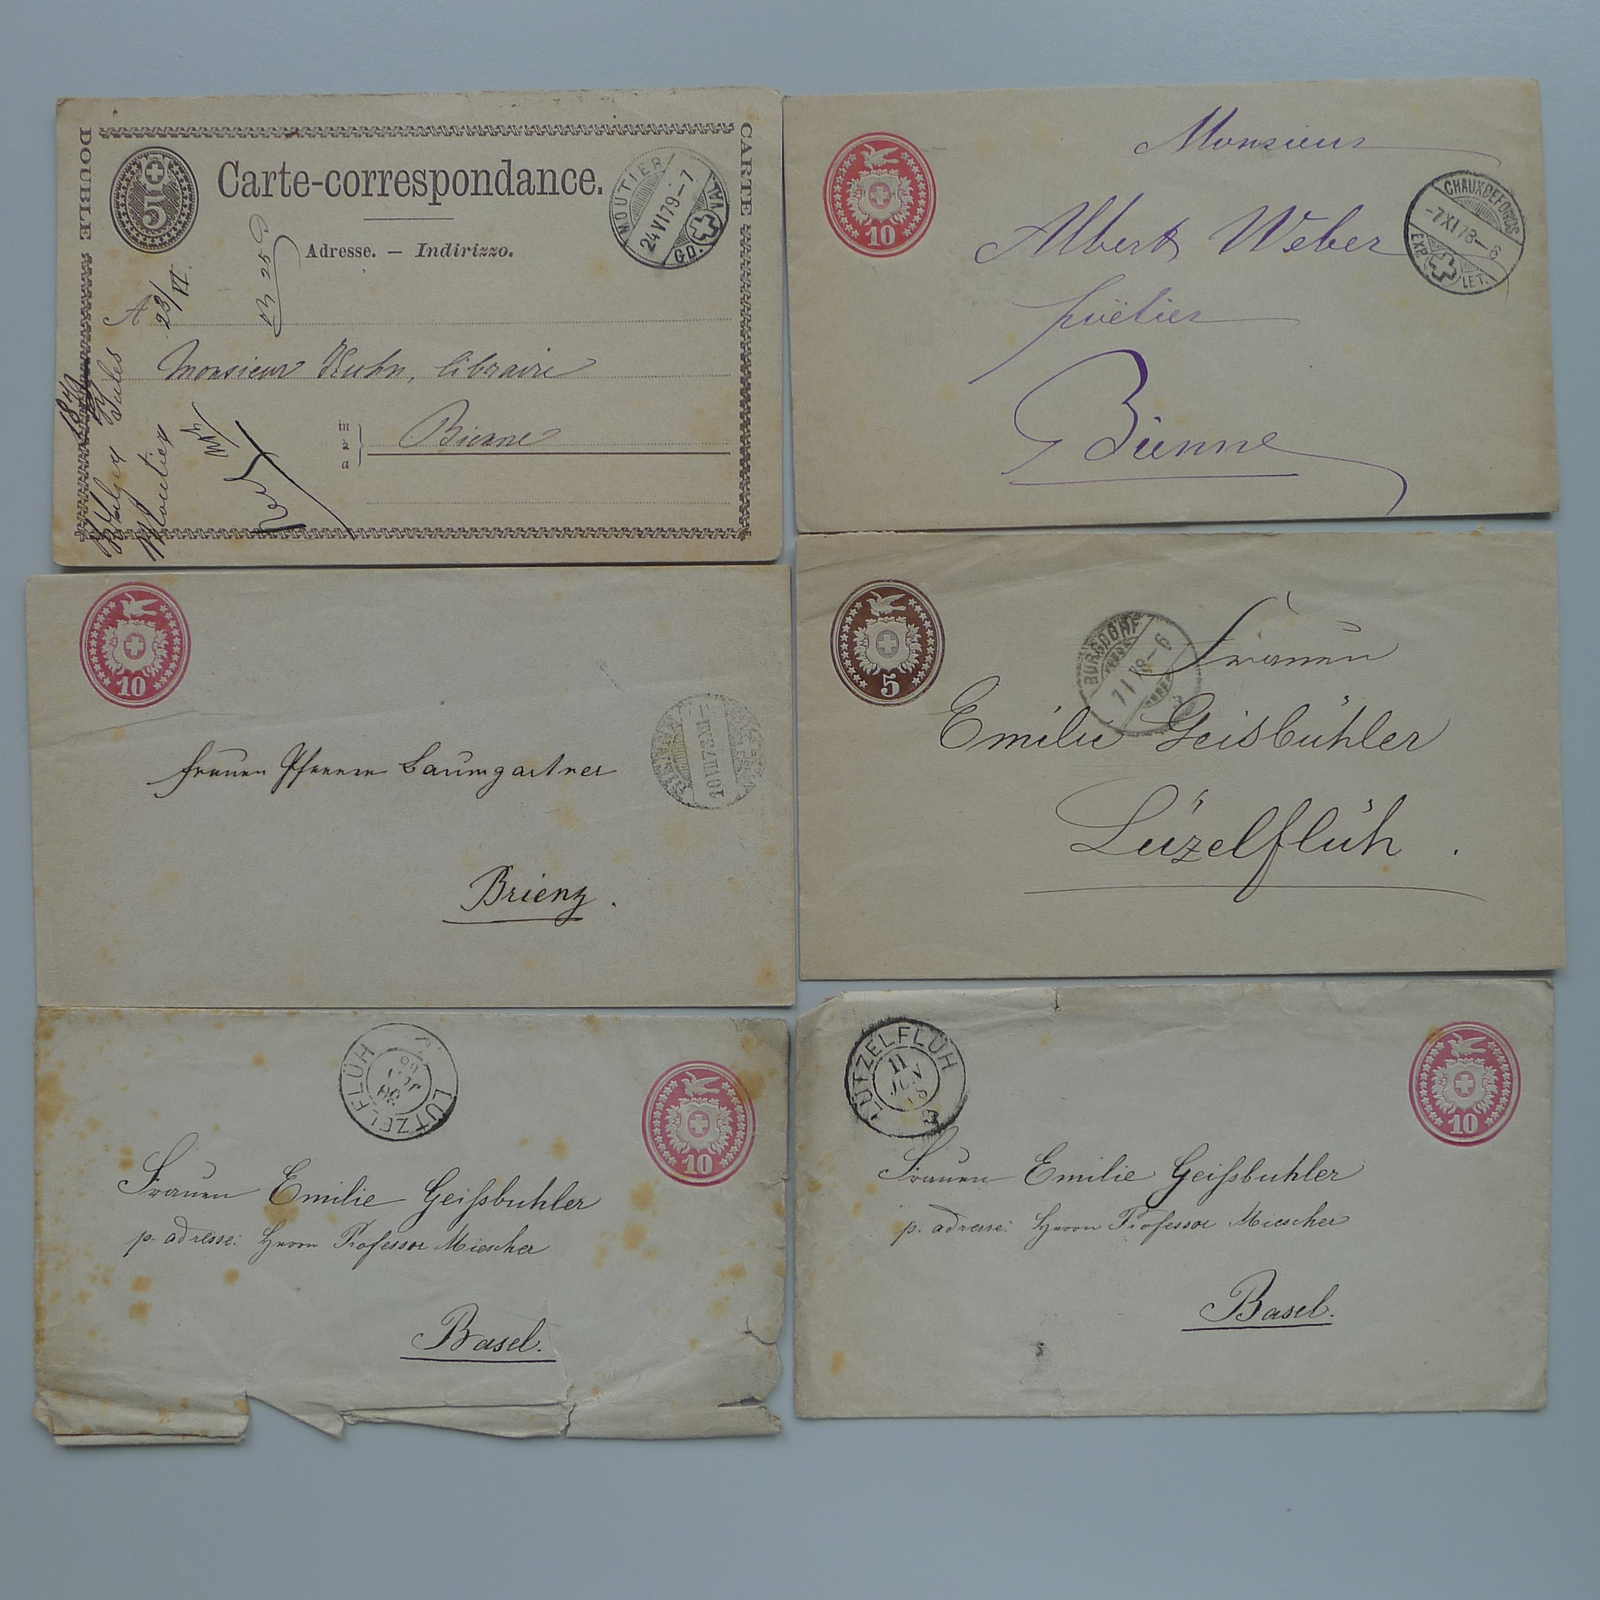 DOUBLE CARTE
5
Carte-correspondance.
Adresse. — Indirizzo.
MOUTIER
24 VI 79–7
GD. VAL
A
23/VI
1879
Jules
Moutier
Monsieur Kuhn, libraire
in
à
a
Bienne
10
Monsieur
Albert Weber
Bienne
CHAUXDEFONDS
–7 XI 78–6
EXP. LET.
10
Frauen Pfarrer Baumgartner
Brienz.
5
BURGDORF
7 I 78–6
Frauen
Emilie Geisbühler
Lüzelflüh.
LÜTZELFLÜH
10
Frauen Emilie Geißbuhler
p. adresse: Herrn Professor Miescher
Basel.
LÜTZELFLÜH
11
10
Frauen Emilie Geißbuhler
p. adresse: Herrn Professor Miescher
Basel.